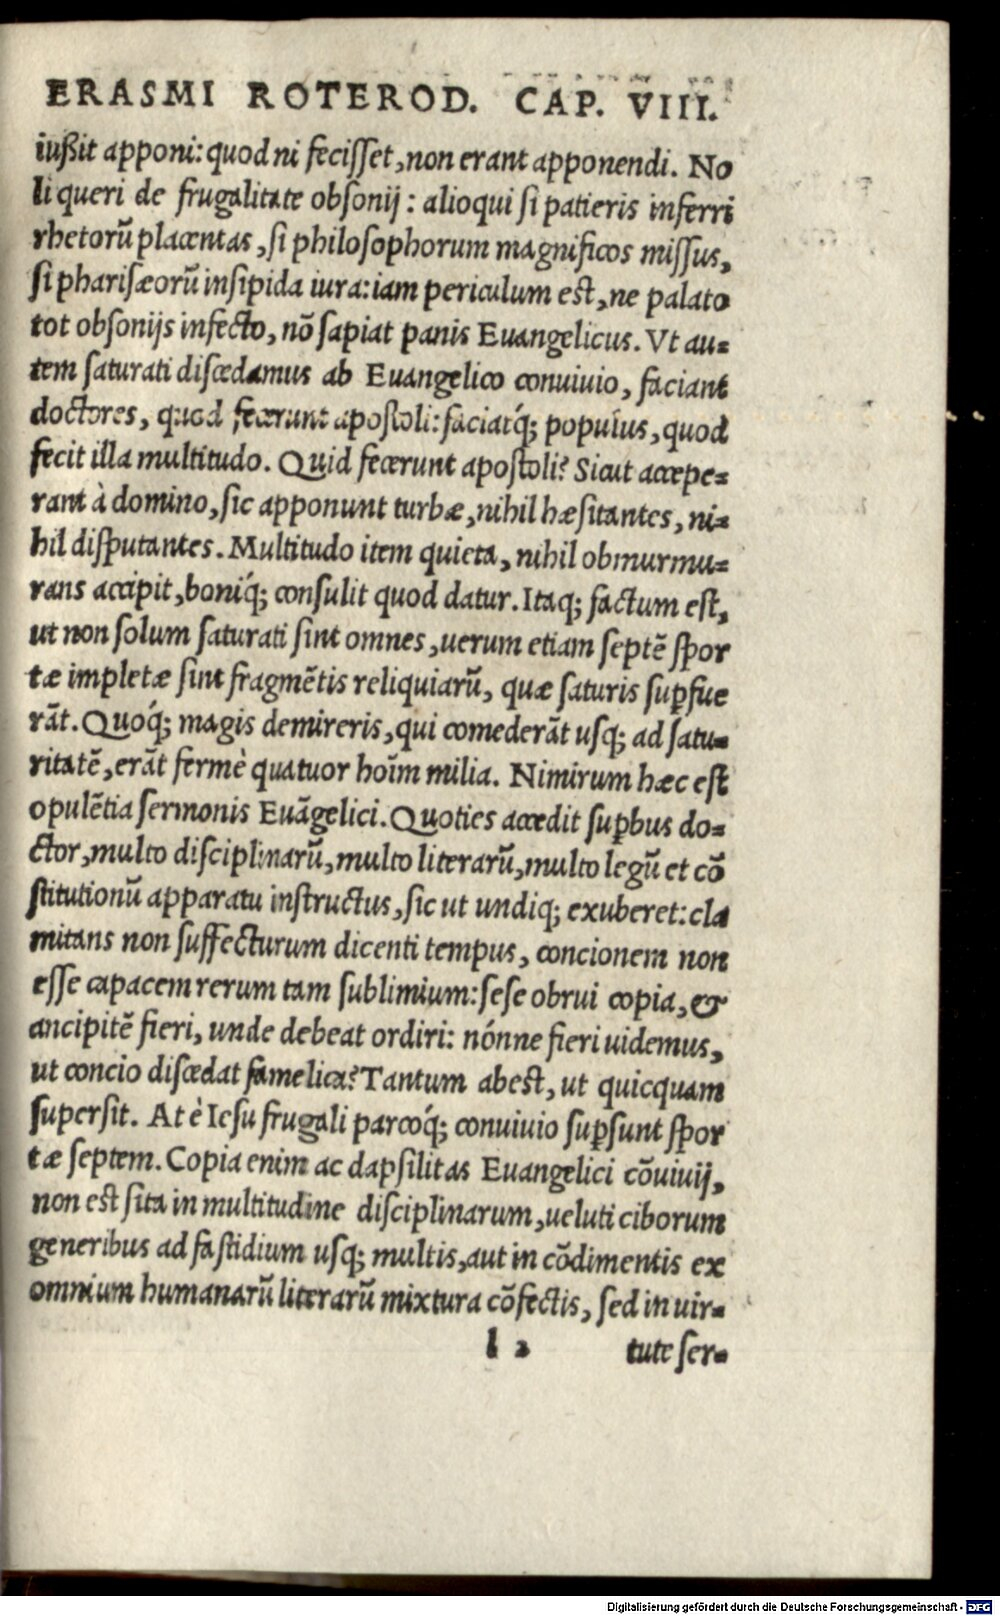 ERASMI ROTEROD. CAP. VIII.
iußit apponi: quod ni feciſſet, non erant apponendi. No
li queri de frugalitate obſonij: alioqui ſi patieris inferri
rhetorũ placentas, ſi philoſophorum magnificos miſſus,
ſi phariſæorũ inſipida iura: iam periculum est, ne palato
tot obſonijs infecto, nõ ſapiat panis Euangelicus. Vt au=
tem ſaturati diſcedamus ab Euangelico conuiuio, faciant
doctores, quod fecerunt apoſtoli: faciatq́; populus, quod
fecit illa multitudo. Quid fecerunt apoſtoli? Sicut accepe=
rant à domino, ſic apponunt turbæ, nihil hæſitantes, ni=
hil diſputantes. Multitudo item quieta, nihil obmurmu=
rans accipit, boniq́; conſulit quod datur. Itaq; factum eſt,
ut non ſolum ſaturati ſint omnes, uerum etiam ſeptẽ ſpor
tæ impletæ ſint fragmẽtis reliquiarũ, quæ ſaturis ſuꝑfue
rãt. Quoq́; magis demireris, qui comederãt uſq; ad ſatu=
ritatẽ, erãt fermè quatuor hoĩm milia. Nimirum hæc eſt
opulẽtia ſermonis Euãgelici. Quoties accedit ſuꝑbus do=
ctor, multo diſciplinarũ, multo literarũ, multo legũ et cõ
ſtitutionũ apparatu inſtructus, ſic ut undiq; exuberet: cla
mitans non ſuffecturum dicenti tempus, concionem non
eſſe capacem rerum tam ſublimium: ſeſe obrui copia, &
ancipitẽ fieri, unde debeat ordiri: nónne fieri uidemus,
ut concio diſcedat famelica? Tantum abest, ut quicquam
superſit. At è Ieſu frugali parcoq́; conuiuio ſuꝑſunt ſpor
tæ ſeptem. Copia enim ac dapſilitas Euangelici cõuiuij,
non eſt ſita in multitudine diſciplinarum, ueluti ciborum
generibus ad faſtidium uſq; multis, aut in cõdimentis ex
omnium humanarũ literarũ mixtura cõfectis, ſed in uir=
l 2 tute ſer=
Digitalisierung gefördert durch die Deutsche Forschungsgemeinschaft - DFG